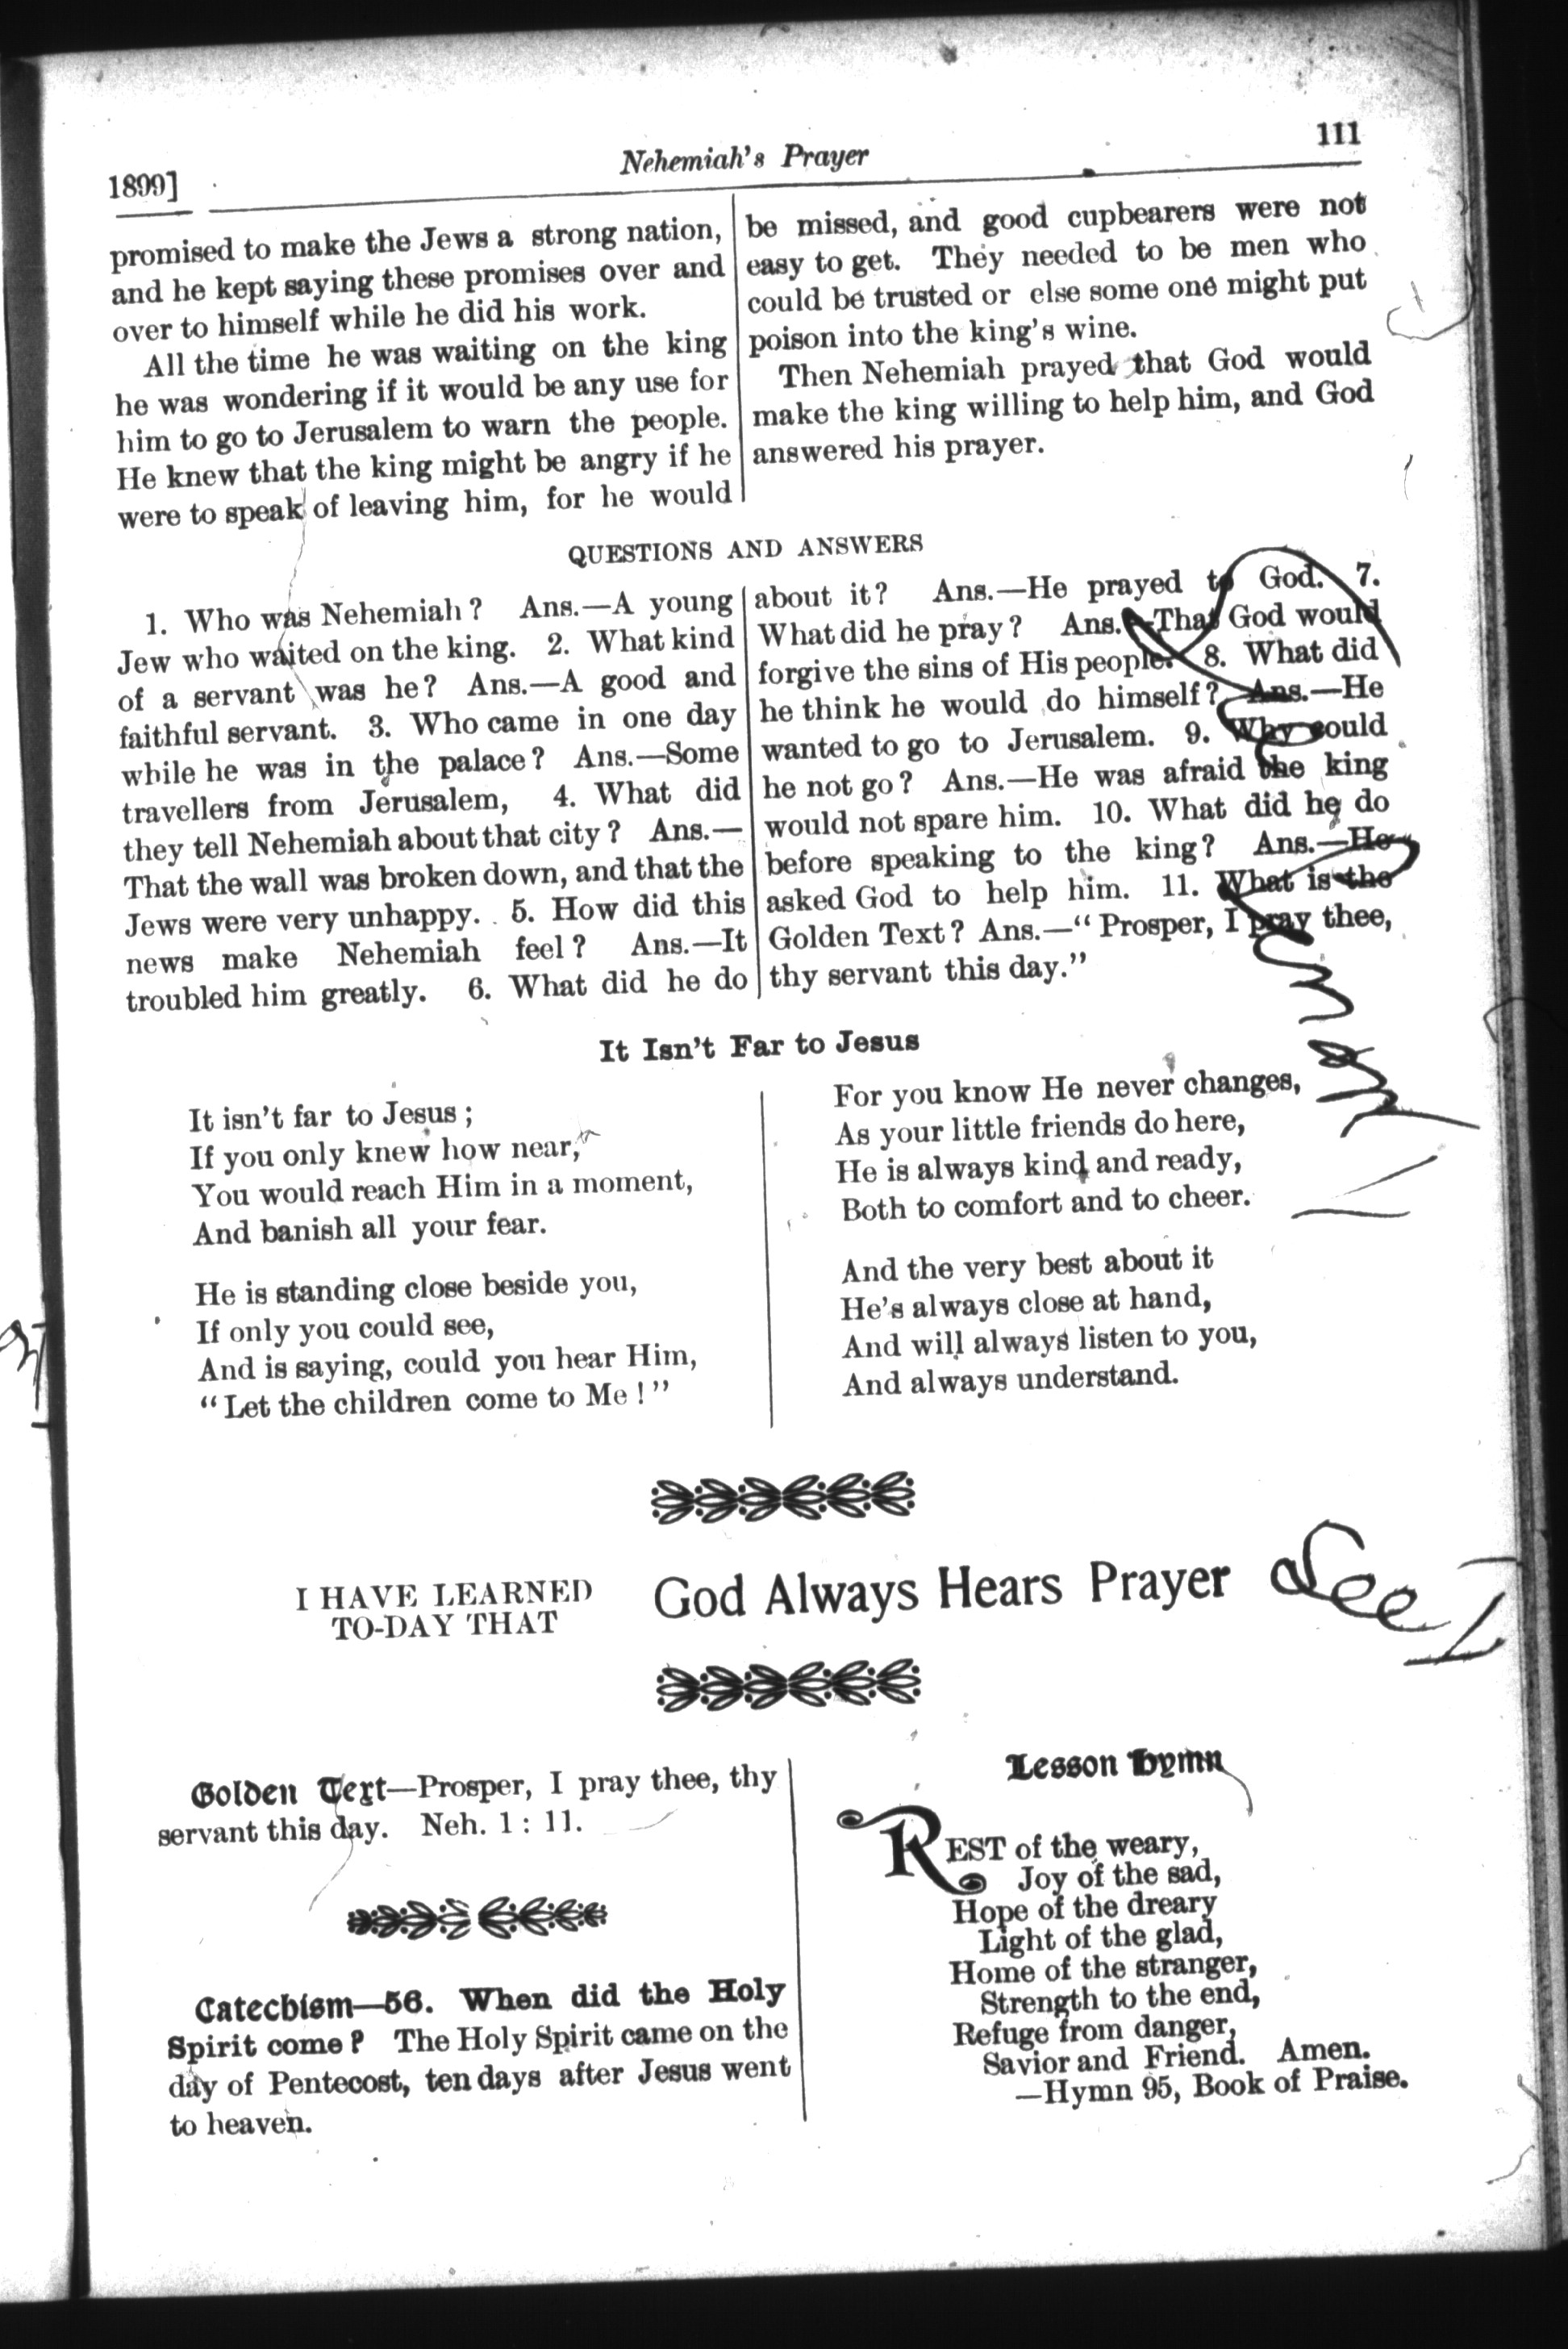 1899]
Nehemiah's Prayer
111
promised to make the Jews a strong nation,
and he kept saying these promises over and
over to himself while he did his work.
All the time he was waiting on the king
he was wondering if it would be any use for
him to go to Jerusalem to warn the people.
He knew that the king might be angry if he
were to speak of leaving him, for he would
be missed, and good cupbearers were not
easy to get. They needed to be men who
could be trusted or else some one might put
poison into the king's wine.
Then Nehemiah prayed that God would
make the king willing to help him, and God
answered his prayer.
QUESTIONS AND ANSWERS
1. Who was Nehemiah? Ans.—A young
Jew who waited on the king. 2. What kind
of a servant was he? Ans.—A good and
faithful servant. 3. Who came in one day
while he was in the palace? Ans.—Some
travellers from Jerusalem, 4. What did
they tell Nehemiah about that city? Ans.—
That the wall was broken down, and that the
Jews were very unhappy. 5. How did this
news make Nehemiah feel? Ans.—It
troubled him greatly. 6. What did he do
about it? Ans.—He prayed to God. 7.
What did he pray? Ans.—That God would
forgive the sins of His people. 8. What did
he think he would do himself? Ans.—He
wanted to go to Jerusalem. 9. Why could
he not go? Ans.—He was afraid the king
would not spare him. 10. What did he do
before speaking to the king? Ans.—He
asked God to help him. 11. What is the
Golden Text? Ans.—"Prosper, I pray thee,
thy servant this day."
It Isn't Far to Jesus
It isn't far to Jesus;
If you only knew how near,
You would reach Him in a moment,
And banish all your fear.
He is standing close beside you,
If only you could see,
And is saying, could you hear Him,
"Let the children come to Me!"
For you know He never changes,
As your little friends do here,
He is always kind and ready,
Both to comfort and to cheer.
And the very best about it
He's always close at hand,
And will always listen to you,
And always understand.
I HAVE LEARNED
TO-DAY THAT
God Always Hears Prayer
See I
Golden Text—Prosper, I pray thee, thy
servant this day. Neh. 1: 11.
Catechism—56. When did the Holy
Spirit come? The Holy Spirit came on the
day of Pentecost, ten days after Jesus went
to heaven.
Lesson Hymn
REST of the weary,
Joy of the sad,
Hope of the dreary
Light of the glad,
Home of the stranger,
Strength to the end,
Refuge from danger,
Savior and Friend. Amen.
—Hymn 95, Book of Praise.